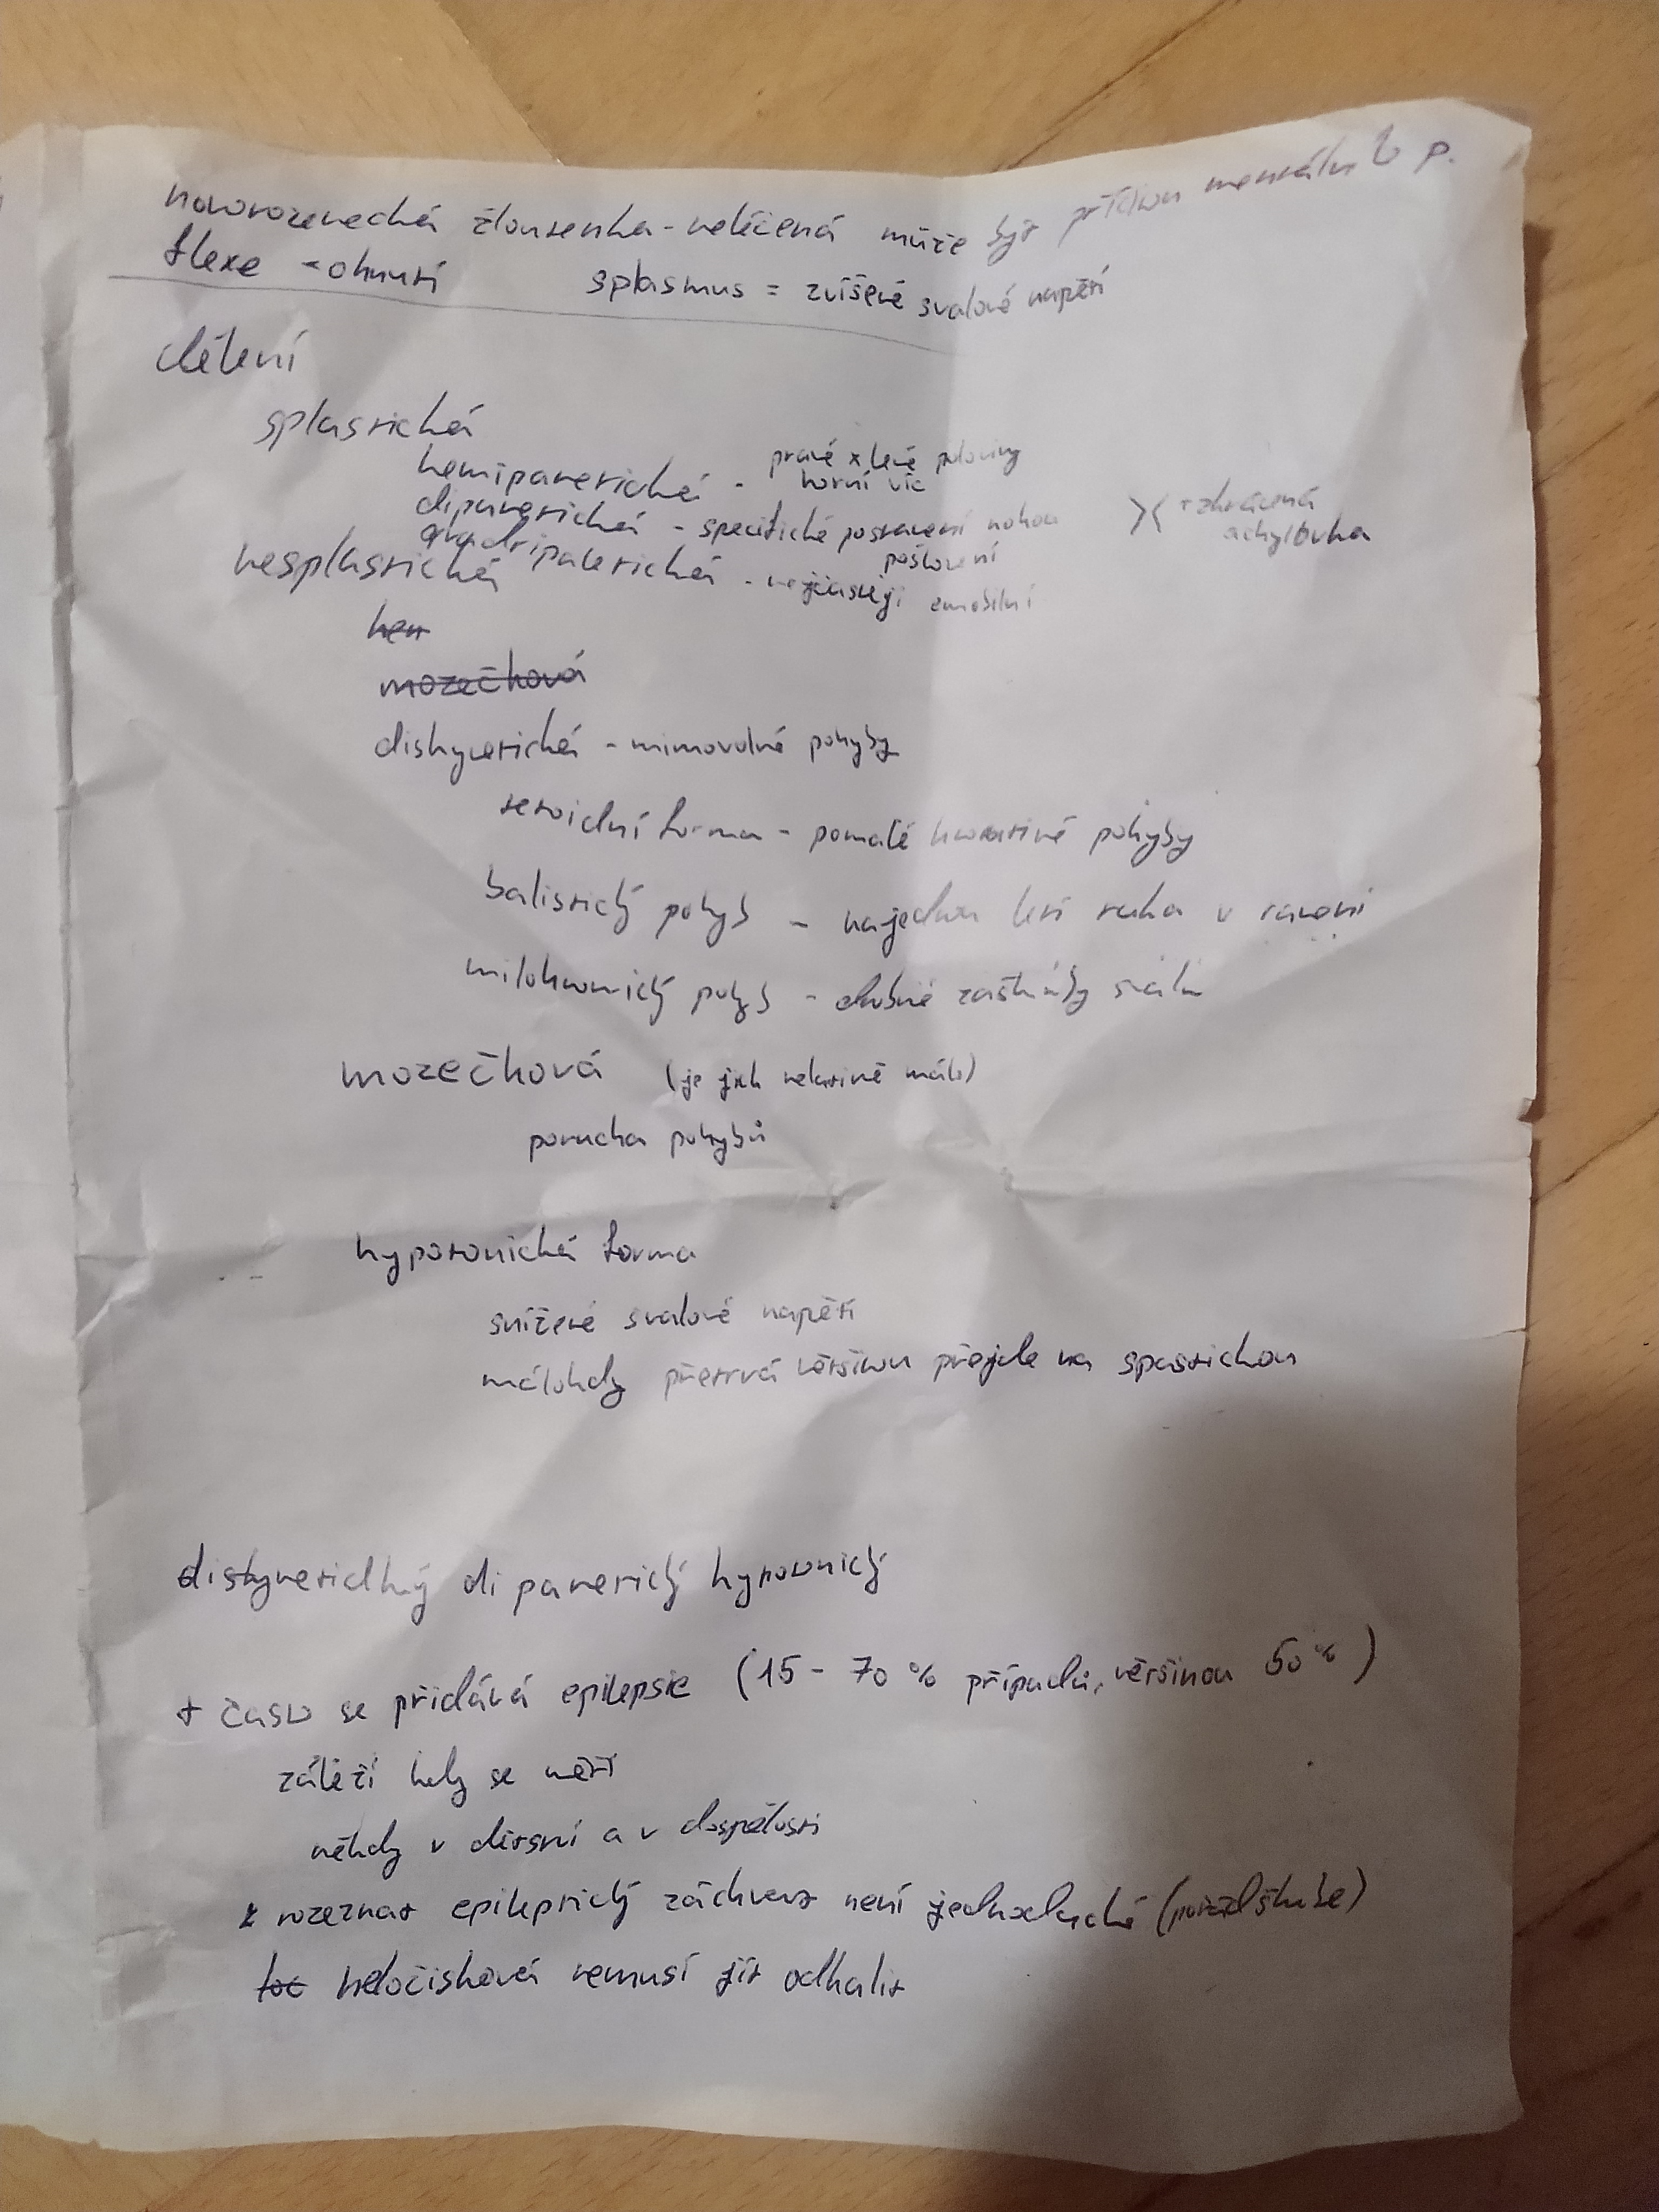 novorozenecká žloutenka - neléčená může být příčinou mentální p.
flexe - ohnutí splasmus = zvíšené svalové napětí
dělení
splastická
hemiparetická - pravé x levé poloviny
horní víc
diparetická - specifické postavení nohou >< + zkrácená
achylovka
quadriparetická - nejčastěji
postižení
nesplastická
hem
mozečková
diskynetická - mimovolné pohyby
tetoidní forma - pomalé kroutivé pohyby
balistický pohyb - najednou letí ruka v rameni
miloklonický pohyb - drobné záškuby svalů
mozečková (je jich relativně málo)
porucha pohybů
hypotonická forma
snížené svalové napětí
málokdy přetrvá většinou přejde na spastickou
diskynetickný diparetický hypotonický
+ často se přidává epilepsie (15 - 70 % případů, většinou 50 %)
záleží kdy se měří
někdy v dětství a v dospělosti
rozeznat epileptický záchvat není jednoduché
neložisková nemusí jít odhalit